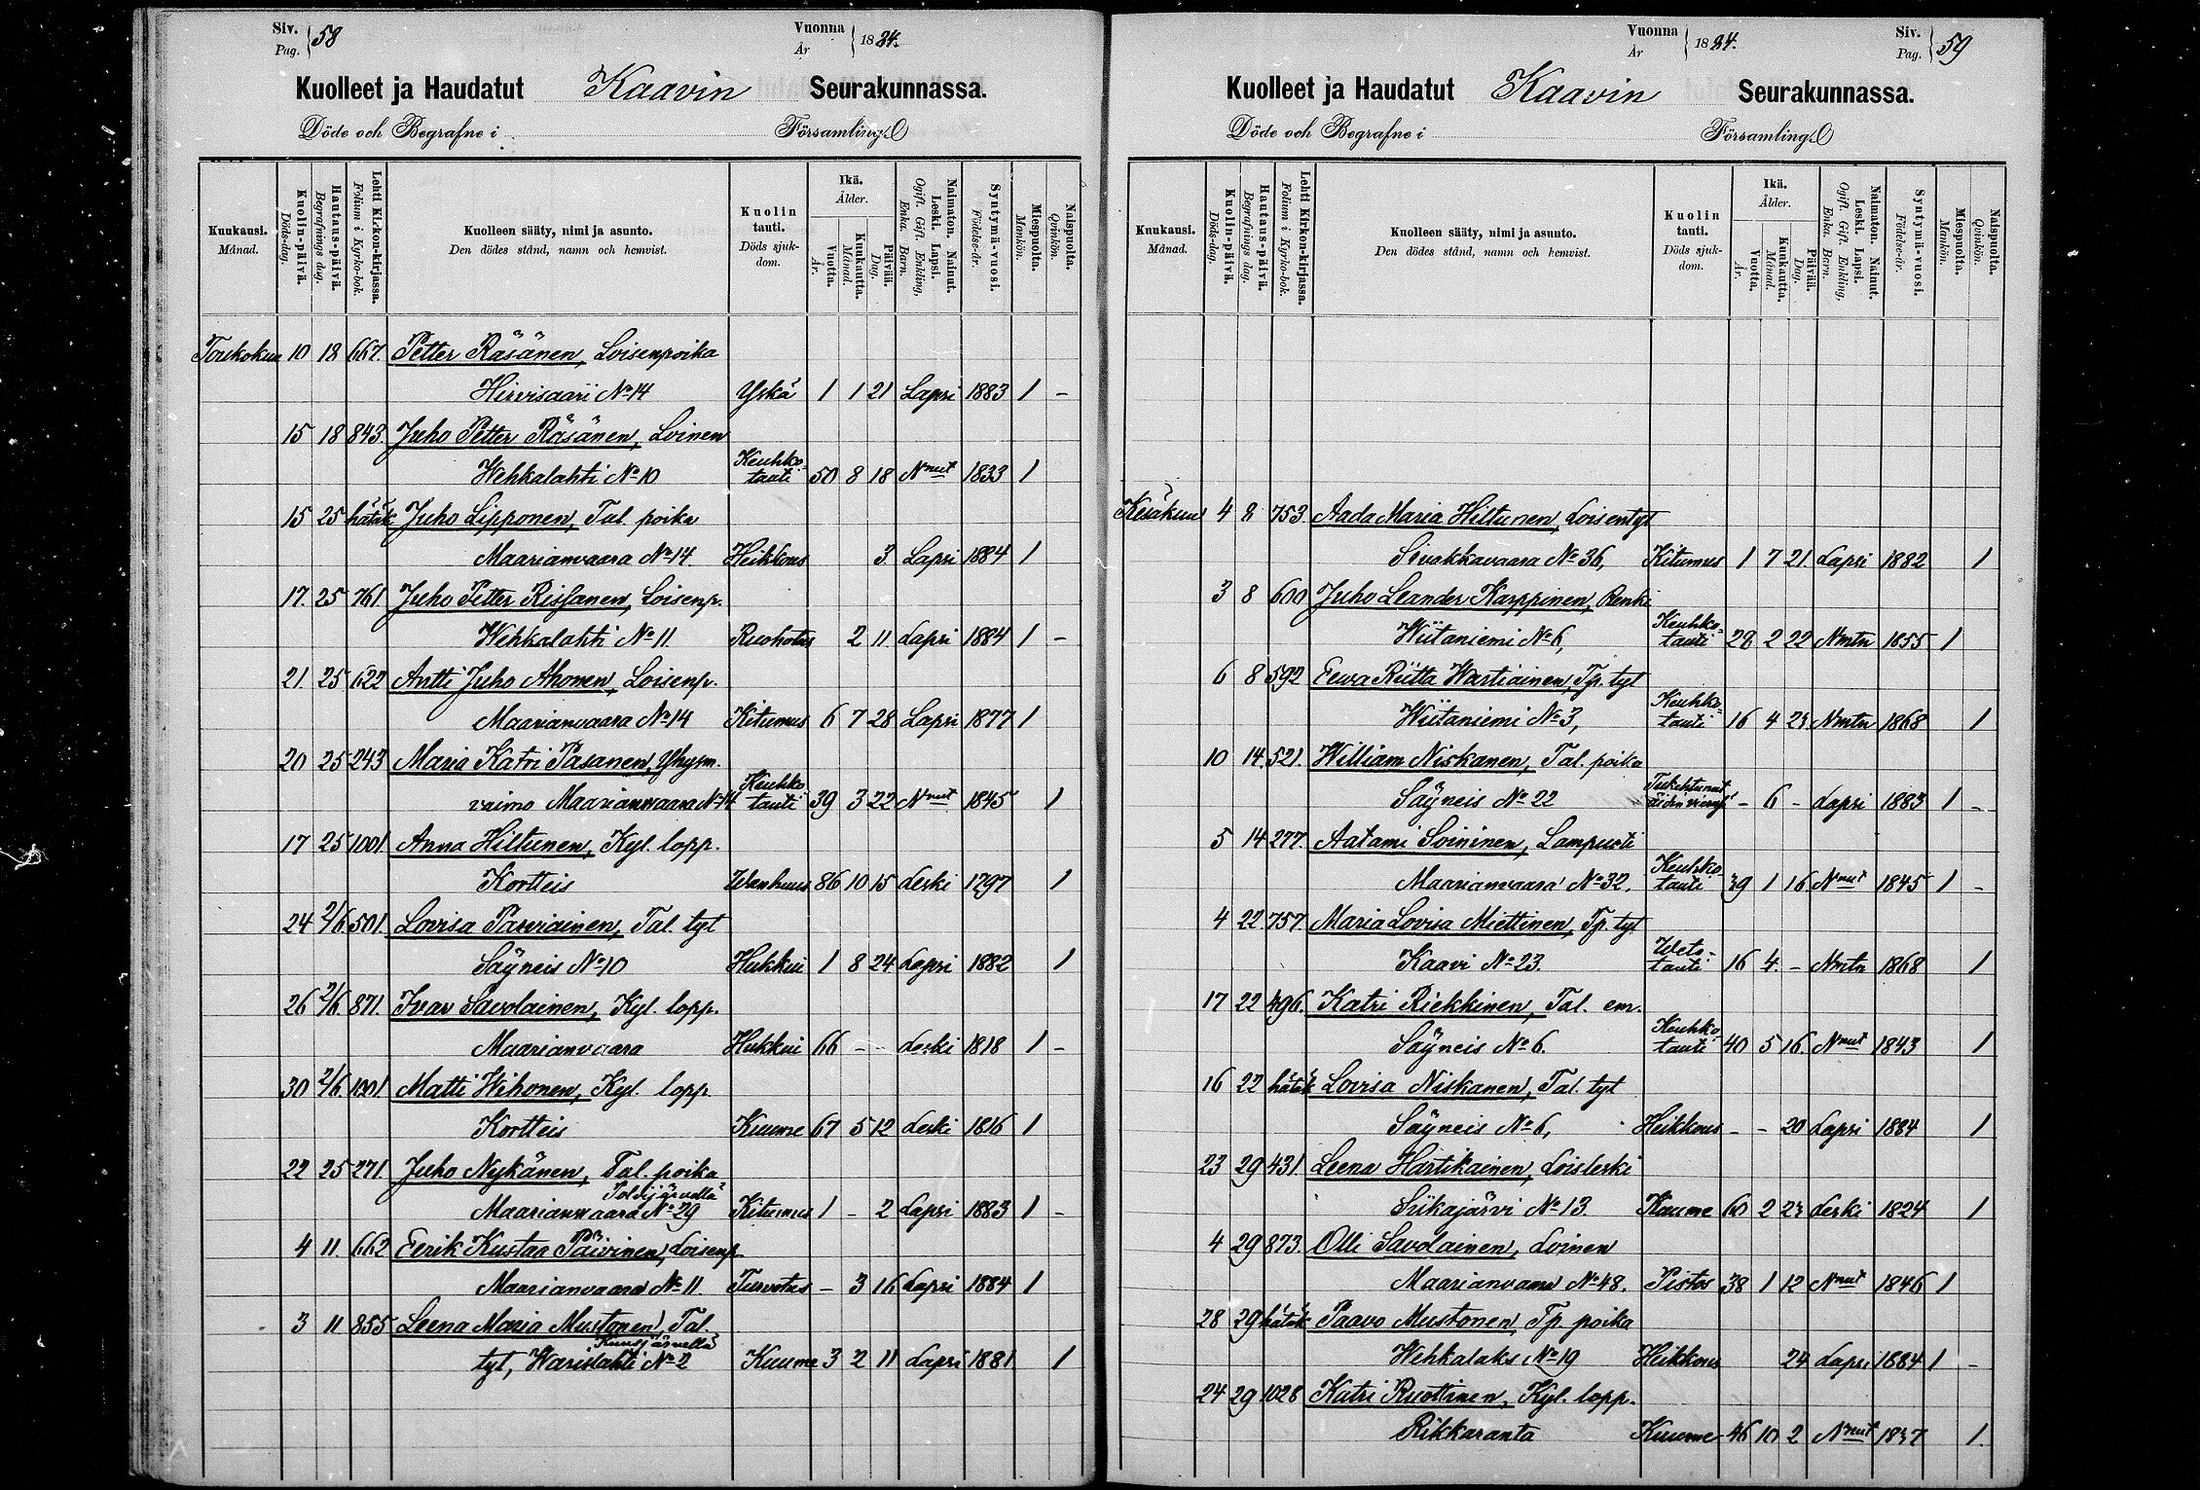 Siv. Pag. 58
Vuonna År 1884.
Kuolleet ja Haudatut Kaavin Seurakunnassa.
Döde och Begrafne i Församling.
Kuukausi. Månad.
Kuolin-päivä. Döds-dag.
Hautaus-päivä. Begrafnings dag.
Lehti Kirkon-kirjassa. Folium i Kyrko-bok.
Kuolleen sääty, nimi ja asunto. Den dödes stånd, namn och hemvist.
Kuolin tauti. Döds sjuk-dom.
Ikä. Ålder.
Vuotta. År.
Kuukautta. Månad.
Päivää. Dag.
Naimaton. Nainut. Leski. Lapsi. Ogift. Gift. Enkling, Enka. Barn.
Syntymä-vuosi. Födelse-år.
Miespuolta. Mankön.
Naispuolta. Qvinkön.
Toukokuu 10 18 667. Petter Räsänen, Loisenpoika
Hirvisaari No 14 Yskä 1 1 21 Lapsi 1883 1 -
15 18 843. Juho Petter Räsänen, Loinen
Wehkalahti No 10 Keuhko-tauti 50 8 18 Nnut 1833 1
15 25 hätäk Juho Lipponen, Tal. poika
Maarianvaara No 14. Heikkous 3 Lapsi 1884 1
17. 25 761. Juho Petter Rissanen, Loisenp.
Wehkalahti No 11 Ruohotus 2 11 Lapsi 1884 1 -
21. 25 622 Antti Juho Ahonen, Loisenp.
Maarianvaara No 14 Kitumus 6 7 28 Lapsi 1877 1
20 25 243 Maria Katri Pasanen, Yhysm.
vaimo Maarianvaara No 14 Keuhko-tauti 39 3 22 Nnut 1845 1
17 25 1001. Anna Hiltunen, Kyl. lopp.
Kortteis Wanhuus 86 10 15 Leski 1797 1
24 2/6 501. Lovisa Parviainen, Tal. tyt
Säyneis No 10 Hukkui 1 8 24 Lapsi 1882 1
26 2/6. 871. Ivar Savolainen, Kyl. lopp.
Maarianvaara Hukkui 66 - - Leski 1818 1 -
30 2/6. 1001 Matti Wihonen, Kyl. lopp.
Kortteis Kuume 67 5 12 Leski 1816 1
22 25 271. Juho Nykänen, Tal. poika
Maarianvaara No 29 Kitumus 1 - 2 Lapsi 1883 1 -
4 11. 662 Eerik Kustaa Päivinen, Loisenp.
Maarianvaara No 11. Turvotus - 3 16 Lapsi 1884 1
3 11 855 Leena Maria Mustonen, Tal.
Kuusjärvellä
tyt, Warislahti No 2 Kuume 3 2 11 Lapsi 1881 1
Vuonna År 1884.
Siv. Pag. 59
Kuolleet ja Haudatut Kaavin Seurakunnassa.
Döde och Begrafne i Församling.
Kuukausi. Månad.
Kuolin-päivä. Döds-dag.
Hautaus-päivä. Begrafnings dag.
Lehti Kirkon-kirjassa. Folium i Kyrko-bok.
Kuolleen sääty, nimi ja asunto. Den dödes stånd, namn och hemvist.
Kuolin tauti. Döds sjuk-dom.
Ikä. Ålder.
Vuotta. År.
Kuukautta. Månad.
Päivää. Dag.
Naimaton. Nainut. Leski. Lapsi. Ogift. Gift. Enkling, Enka. Barn.
Syntymä-vuosi. Födelse-år.
Miespuolta. Mankön.
Naispuolta. Qvinkön.
Kesäkuu 4 8 753. Aada Maria Hiltunen, Loisentyt
Sivakkavaara No 36, Kitumus 1 7 21 Lapsi 1882 1
3 8 600 Juho Leander Karppinen, Renki
Wiitaniemi No 6, Keuhko-tauti 28 2 22 Nmtn 1855 1
6 8 592 Eewa Riitta Wartiainen, Tp. tyt
Wiitaniemi No 3, Keuhko-tauti 16 4 23 Nmtn 1868 1
10 14. 521. William Niskanen, Tal. poika
Säyneis No 22 Tukehtunut äidin - 6 - Lapsi 1883 1 -
5 14 277. Aatami Soininen, Lampuoti
Maarianvaara No 32. Keuhko tauti 39 1 16 Nnut 1845 1 -
4 22 757. Maria Lovisa Miettinen, Tp. tyt
Kaavi No 23. Weto-tauti 16 4. - Nmtn 1868 1
17 22 496. Katri Riekkinen, Tal. em.
Säyneis No 6. Keuhko tauti 40 5 16. Nnut 1843 1
16 22 hätäk Lovisa Niskanen, Tal. tyt
Säyneis No 6, Heikkous - - 20 Lapsi 1884 1
23 29 431 Leena Hartikainen, Loisleski
Siikajärvi No 13. Kuume 60 2 23 Leski 1824 1
4 29 873. Olli Savolainen, Loinen
Maarianvaara No 48. Pistos 38 1 12 Nnut 1846 1
28 29 hätäk Paavo Mustonen, Tp. poika
Wehkalaks No 19 Heikkous 24 Lapsi 1884 1 -
24 29 1028 Katri Ruottinen, Kyl. lopp.
Rikkaranta Kuume 46 10 2 Nnut 1837 1.